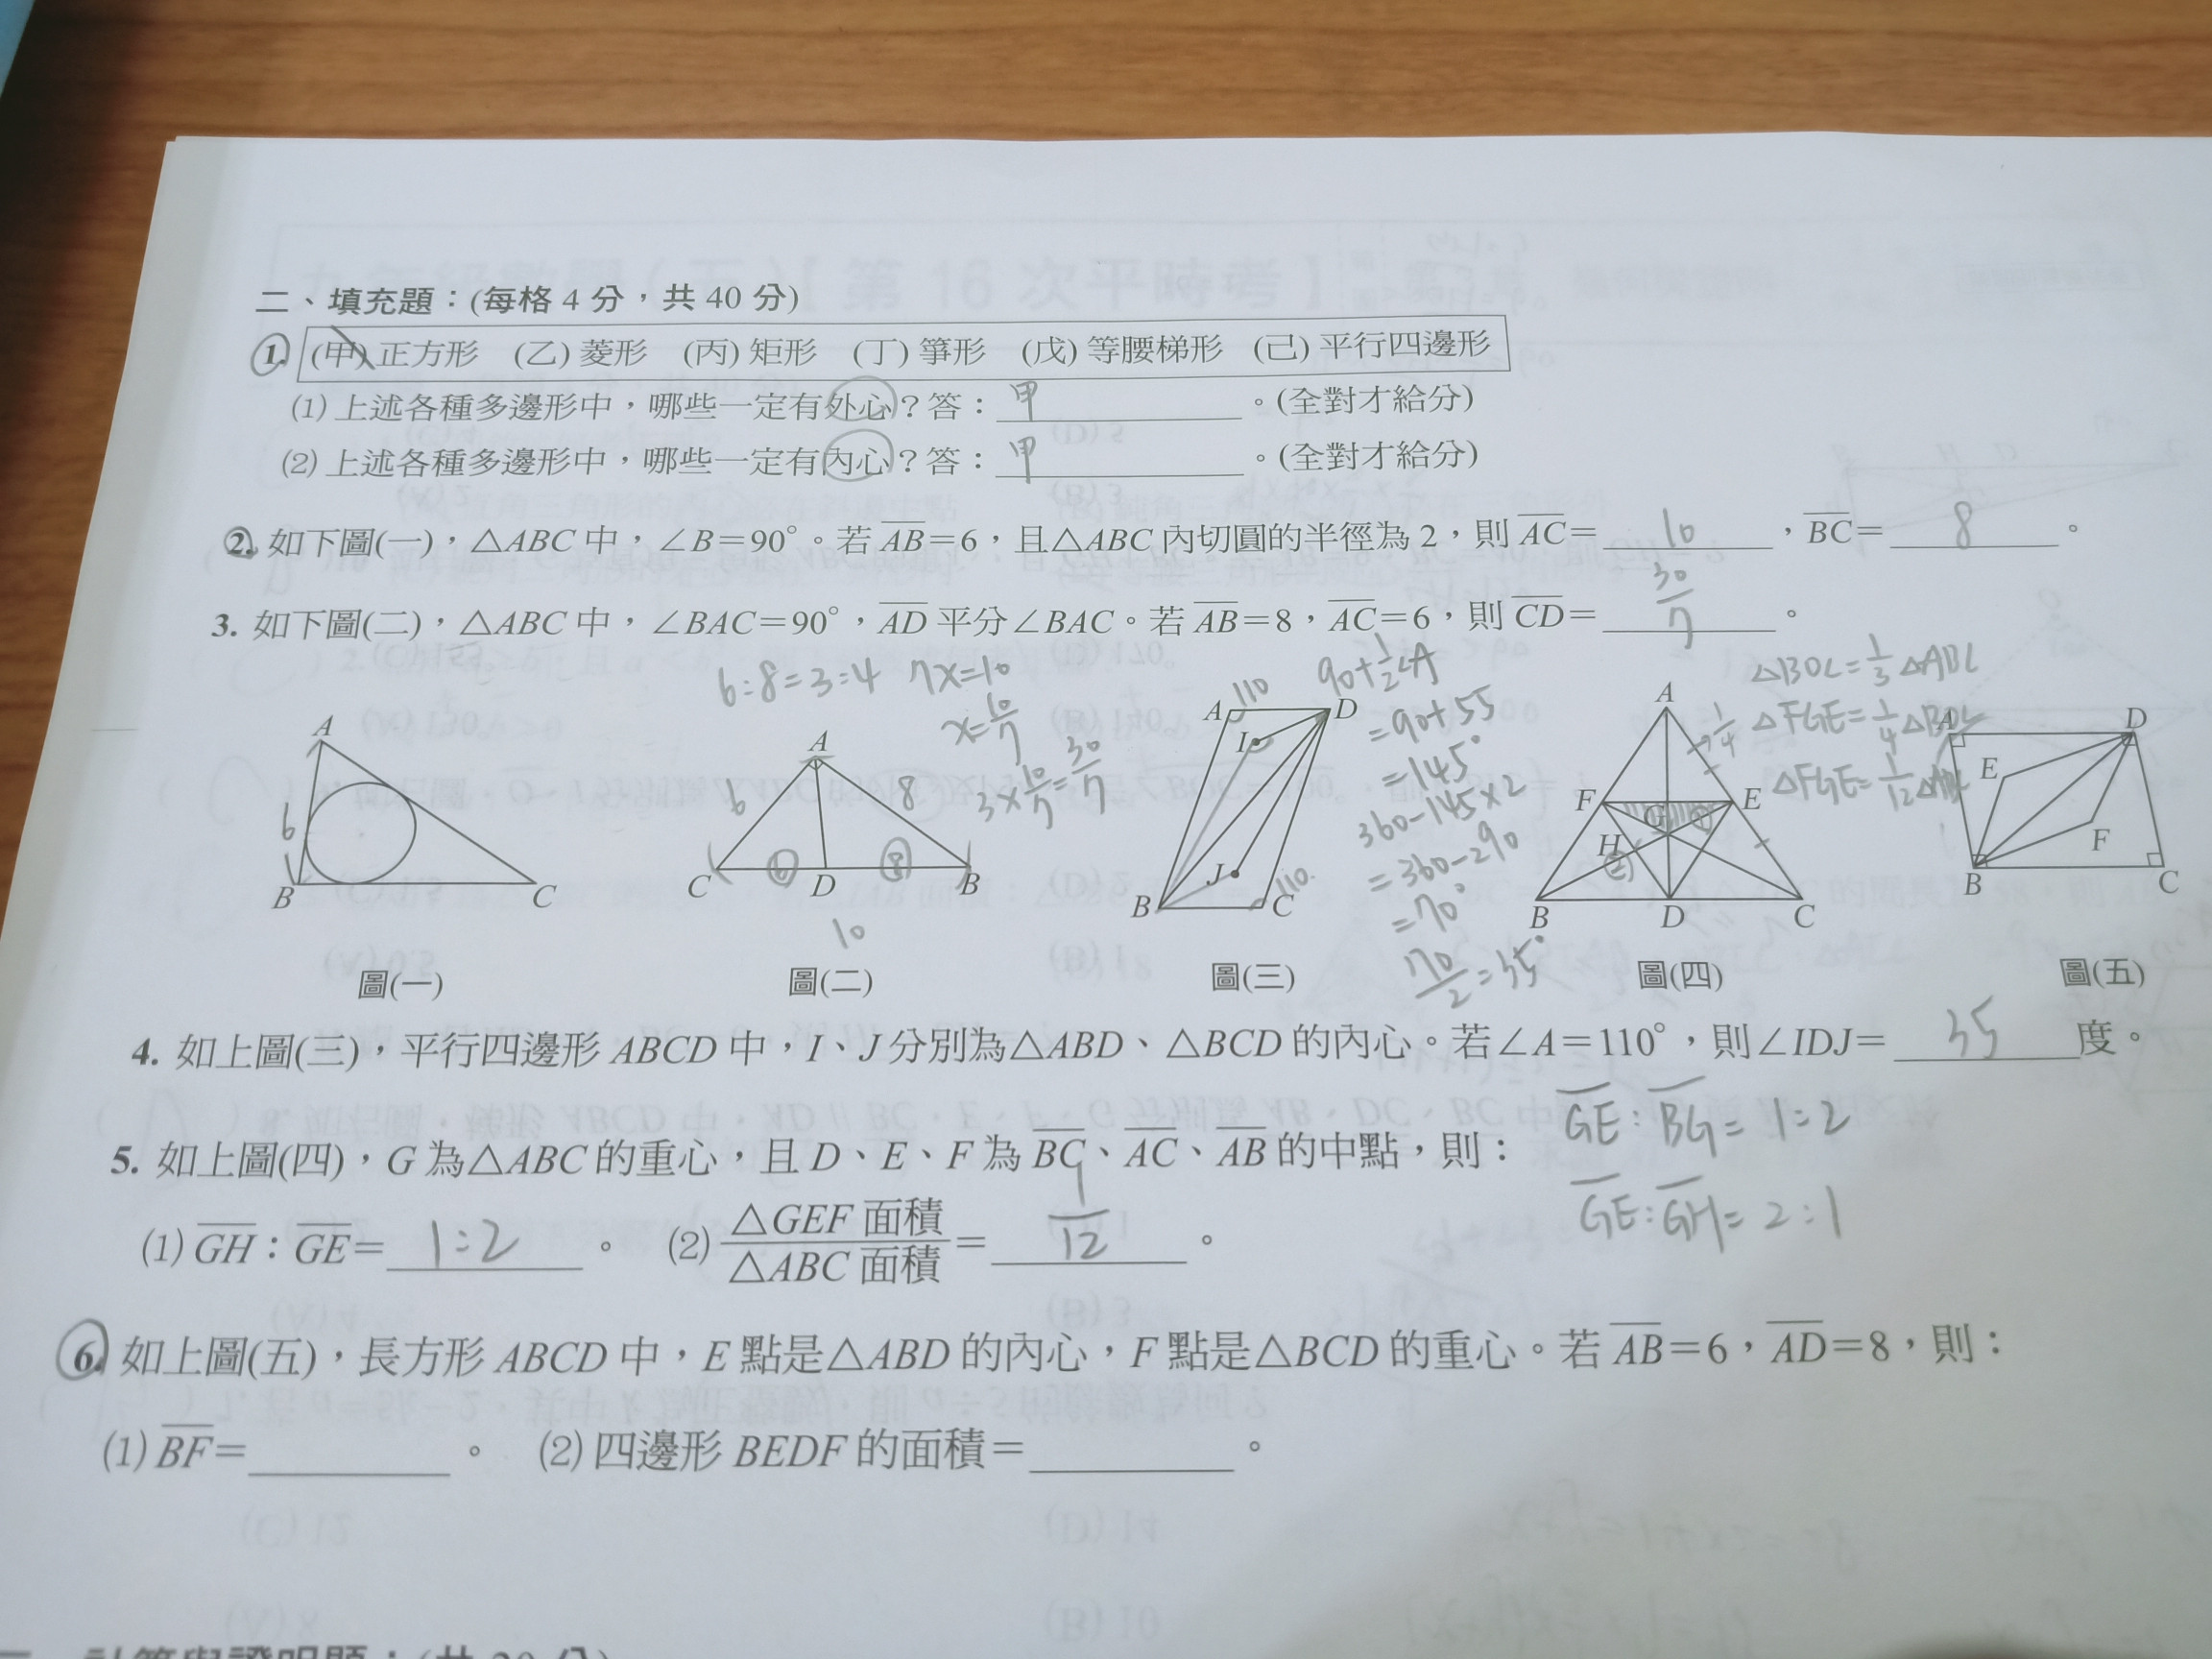 二、填充題：(每格 4 分，共 40 分)
1. (甲) 正方形 (乙) 菱形 (丙) 矩形 (丁) 箏形 (戊) 等腰梯形 (己) 平行四邊形
(1) 上述各種多邊形中，哪些一定有外心？答：甲。(全對才給分)
(2) 上述各種多邊形中，哪些一定有內心？答：甲。(全對才給分)
2. 如下圖(一)，△ABC 中，∠B＝90°。若 AB＝6，且△ABC 內切圓的半徑為 2，則 AC＝10，BC＝8。
3. 如下圖(二)，△ABC 中，∠BAC＝90°，AD 平分∠BAC。若 AB＝8，AC＝6，則 CD＝30/7。
6:8=3:4 7x=10
x=10/7
3×10/7=30/7
90+1/2∠A
=90+55
=145°
360-145×2
=360-290
=70°
70/2=35°
△BOC=1/3△ABC
△FGE=1/4△BOC
△FGE=1/12△ABC
A 6 B C
圖(一)
A 6 8 C ⑥ D ⑧ B 10
圖(二)
A 110 D I J B C 110
圖(三)
A 1/4 F G E H ② B D C
圖(四)
A D E F B C
圖(五)
4. 如上圖(三)，平行四邊形 ABCD 中，I、J 分別為△ABD、△BCD 的內心。若∠A＝110°，則∠IDJ＝35度。
GE:BG=1:2
5. 如上圖(四)，G 為△ABC 的重心，且 D、E、F 為 BC、AC、AB 的中點，則：
GE:GH=2:1
(1) GH：GE＝1:2。 (2) △GEF 面積/△ABC 面積＝1/12。
6. 如上圖(五)，長方形 ABCD 中，E 點是△ABD 的內心，F 點是△BCD 的重心。若 AB＝6，AD＝8，則：
(1) BF＝。 (2) 四邊形 BEDF 的面積＝。